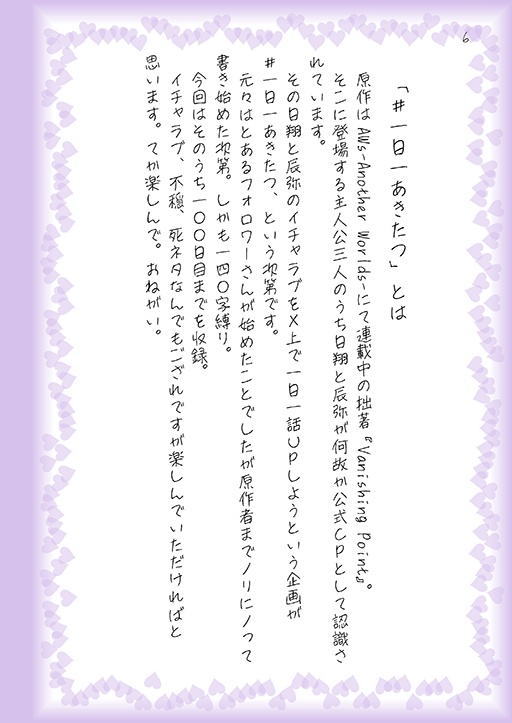 6
「#一日一あきたつ」とは
原作はAWs-Another Worlds-にて連載中の拙著『Vanishing Point』。
そこに登場する主人公三人のうち日翔と辰弥が何故か公式CPとして認識さ
れています。
その日翔と辰弥のイチャラブをX上で一日一話UPしようという企画が
#一日一あきたつ、という次第です。
元々はとあるフォロワーさんが始めたことでしたが原作者までノリにノって
書き始めた次第。しかも一四〇字縛り。
今回はそのうち一〇〇日目までを収録。
イチャラブ、不穏、死ネタなんでもござれですが楽しんでいただければと
思います。てか楽しんで。おねがい。